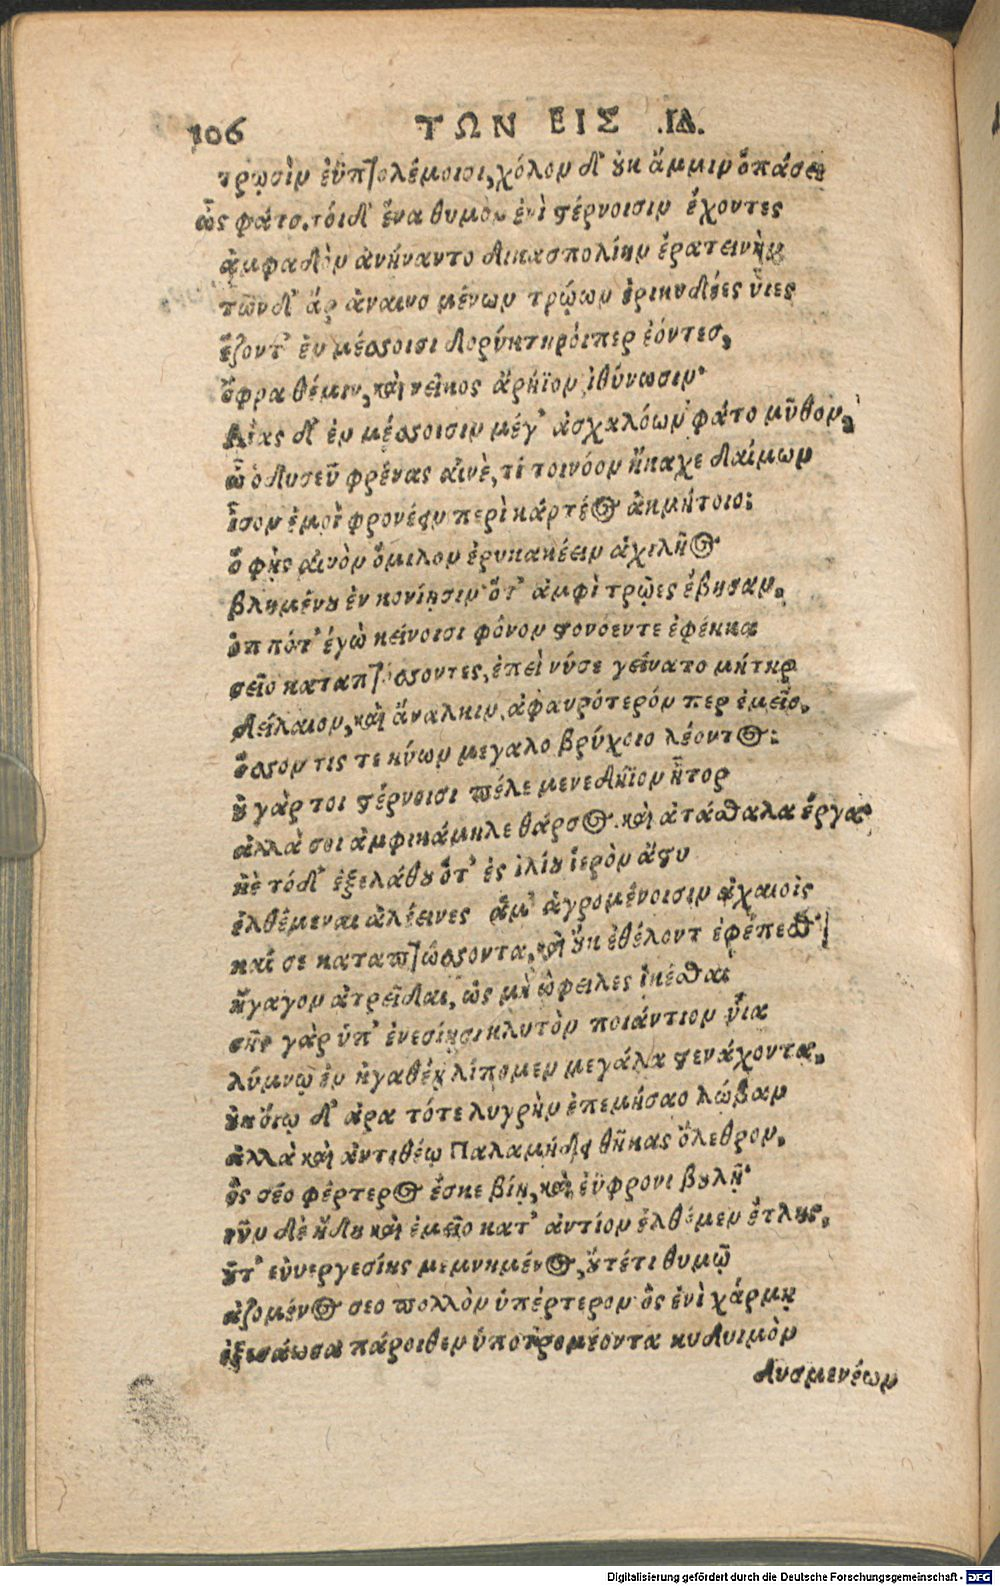 106 ΤΩΝ ΕΙΣ .ΙΔ.
τρωσὶν ἐϋπτολέμοισι, χόλον δ' οὐκ ἄμμιν ὀπάσει
ὣς φάτο. τόι δ' ἕνα θυμὸν ἐνὶ στέρνοισιν ἔχοντες
ἀμφαδὸν ἀνήναντο δικασπολίην ἐρατεινὴν
τῶν δ' ἄρ ἀναινομένων τρώων ἐρικυδέες ὗιες
ἕζοντ' ἐν μέσσοισι δορύκτητρόιπερ ἐόντες,
ὄφρα θέμιν, καὶ νεῖκος ἀρήϊον ἰθύνωσιν·
Αἴας δ' ἐν μέσσοισιν μέγ' ἀσχαλόων φάτο μῦθον,
ὦ ὀδυσεῦ φρένας αἰνὲ, τί τοι νόον ἤπαχε δαίμων
ἶσον ἐμοὶ φρονέειν περὶ κάρτεος ἀκμήτοιο;
ὃ φῂς αἰνὸν ὅμιλον ἐρυκακέειν ἀχιλῆος
βλημένου ἐν κονίῃσιν ὅτ' ἀμφὶ τρῶες ἔβησαν,
ὁππότ' ἐγὼ κείνοισι φόνον στονόεντ' ἐφέηκα
σεῖο καταπτώσσοντες, ἐπεὶ νύ σε γείνατο μήτηρ
δείλαιον, καὶ ἄναλκιν, ἀφαυρότερόν περ ἐμεῖο,
ὅσσον τίς τε κύων μεγαλοβρύχοιο λέοντος;
οὐ γάρ τοι στέρνοισι πέλε μενεδήϊον ἦτορ
ἀλλά σοι ἀμφικάμηλε θάρσος καὶ ἀτάσθαλα ἔργα·
ἠὲ τόδ' ἐξελάθου ὅτ' ἐς ἰλίου ἱερὸν ἄστυ
ἐλθέμεναι ἀλέεινες ἅμ' ἀγρομένοισιν ἀχαιοὶς
καί σε καταπτώσσοντα, καὶ οὐκ ἐθέλοντ ἐφέπεσθαι
ἤγαγον ἀτρεῖδαι, ὡς μὴ ὤφειλες ἱκέσθαι
σῇς γὰρ ὑπ' ἐνεσίῃσι κλυτὸν ποιάντιον ὗια
λύμνῳ ἐν ἠγαθέῃ λίπομεν μεγάλα στενάχοντα,
οὐκ ὄιῳ δ' ἄρα τότε λυγρὴν ἐπεμήσαο λώβαν
ἀλλὰ καὶ ἀντιθέῳ Παλαμήδει θῆκας ὄλεθρον,
ὅς σέο φέρτερος ἔσκε βίῃ, καὶ ἐΰφρονι βουλῇ·
νῦν δὲ ἤδη καὶ ἐμεῖο κατ' ἀντίον ἐλθέμεν ἔτλης,
οὔτ' εὐυεργεσίης μεμνημένος, οὔτέτι θυμῷ
ἁζομένος σεο πολλὸν ὑπέρτερον ὅς ἐνὶ χάρμῃ
ἐξεσάωσα πάροιθεν ὑποτρομέοντα κυδοιμὸν
δυσμενέων
Digitalisierung gefördert durch die Deutsche Forschungsgemeinschaft - DFG